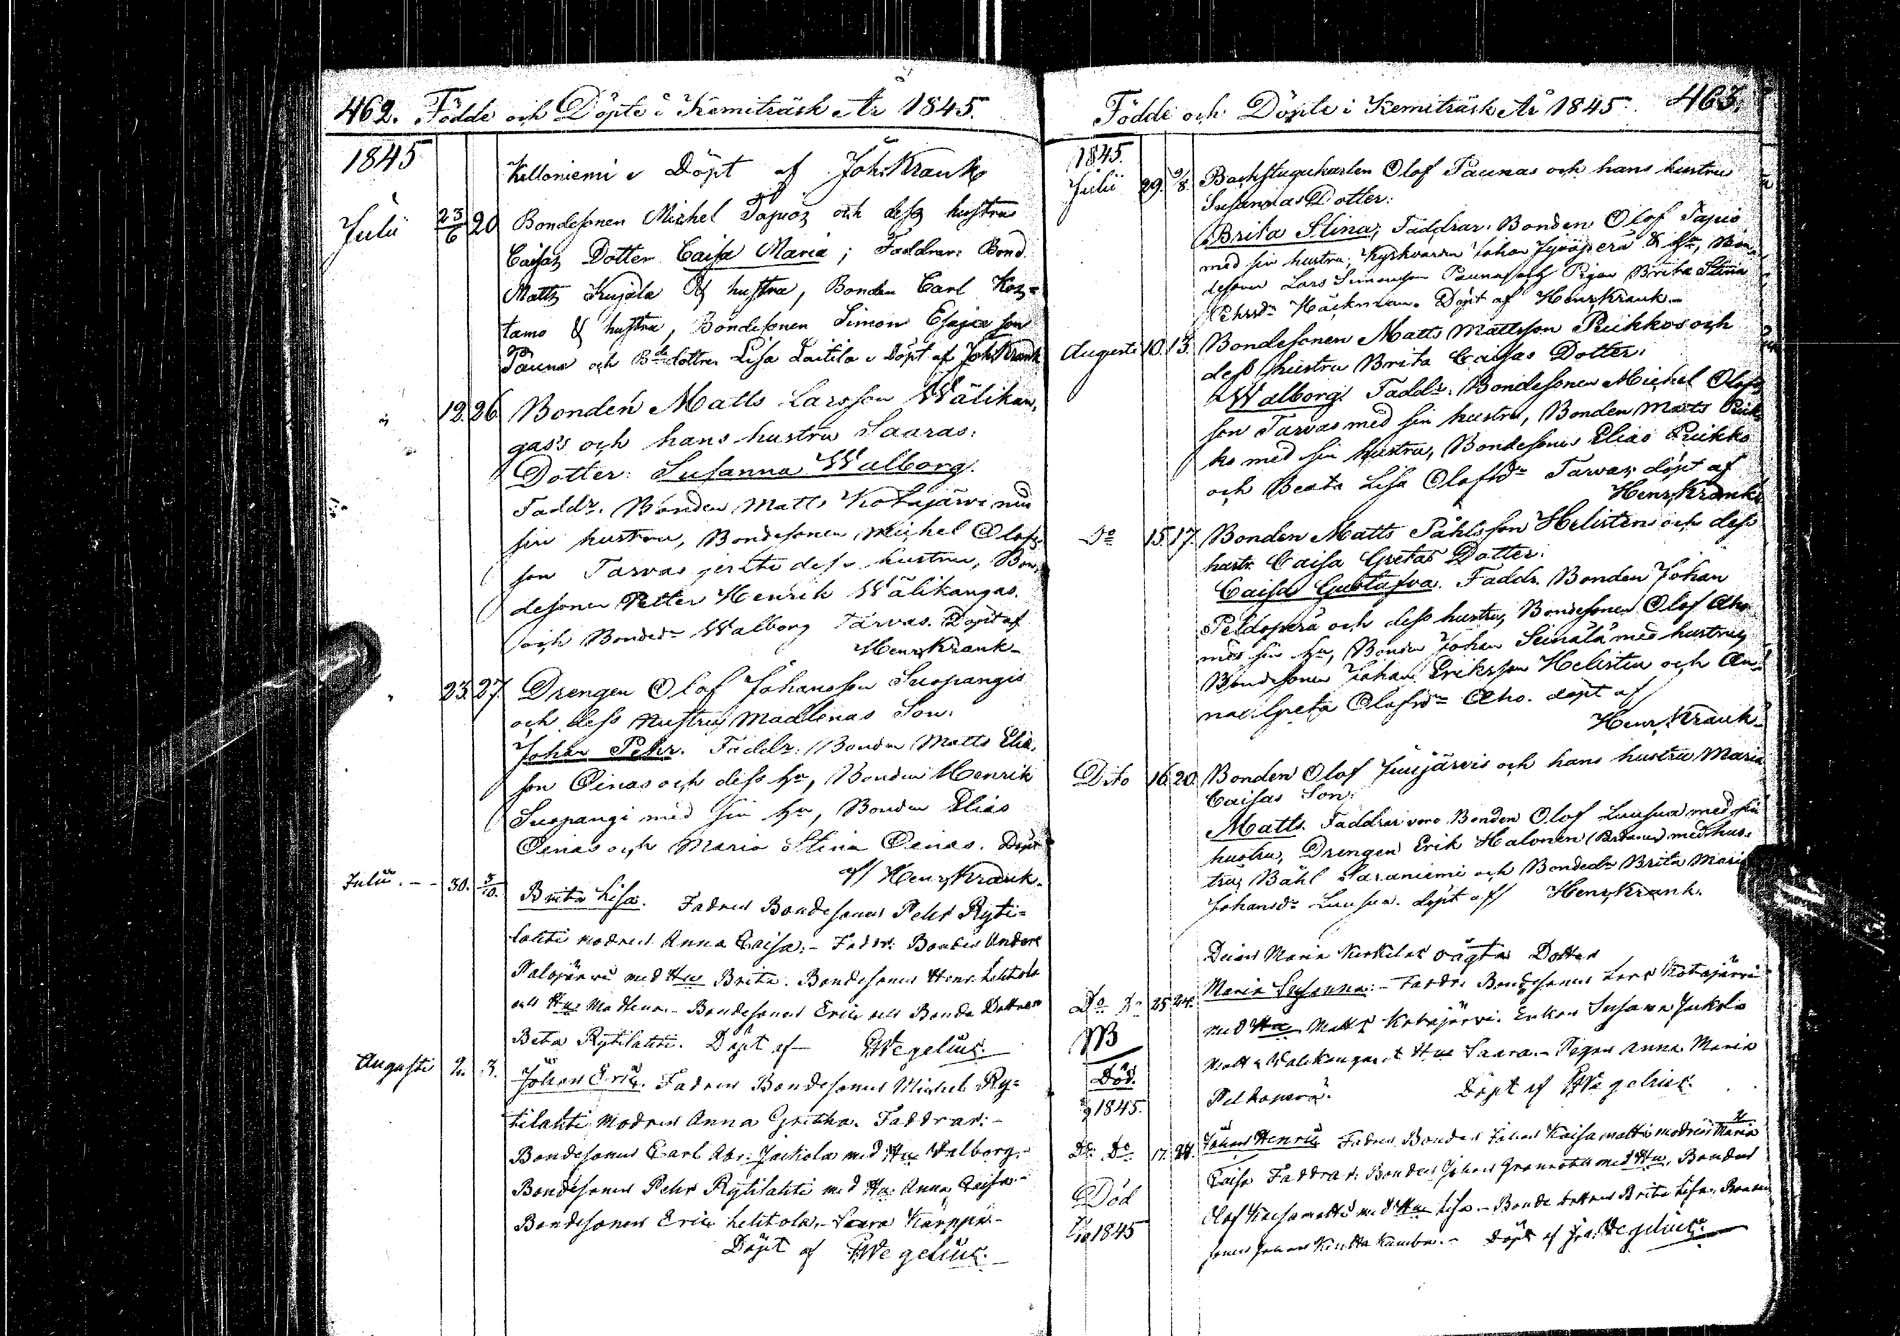 462. Födde och Döpte i Kemiträsk År 1845.
1845
Kelloniemi Döpt af Joh. Krank
Julii 23/6 20 Bondesonen Michel Tapios och dess hustrus
Caisas Dotter Caisa Maria; Faddrar: Bond.
Matts Kujala & hustru, Bonden Carl Kos=
tamo & hustru, Bondesonen Simon Esajæson
Pauna och Bde dottren Lisa Laitila Döpt af Joh. Krank
12. 26. Bonden Matts Larsson Wälikan,
gas's och hans hustru Saaras:
Dotter: Susanna Walborg.
Faddr. Bonden Matts Kotajärvi med
sin hustru, Bondesonen Michel Olofs
son Tarvas jemte dess hustru, Bon,
desonen Petter Henrik Wälikangas
och Bondedr Walborg Tarvas. Döpt af
Henr. Krank
23. 27. Drengen Olof Johansson Suopangis
och dess hustrus Madlenas Son:
Johan Pehr. Faddr. Bonden Matts Elia,
son Oinas och dess hu, Bonden Henrik
Suopangi med sin hu, Bonden Elias
Oinas och Maria Stina Oinas. Döpt
af Henr. Krank.
Julii. 30. 3/10. Brita Lisa. Fadren Bondesonen Pehr Ryti=
lahti modren Anna Caisa. Faddr: Bonden Anders
Palojärvi med Hu Brita. Bondesonen Henr. Lehtola
och Hu Madlena. Bondesonen Eric och Bonde Dottren
Beta Rytilahti. Döpt af Wegelius.
Augusti 2. 3. Johan Eric. Fadren Bondesonen Michel Ry=
tilahti Modren Anna Gretha. Faddrar:
Bondesonen Carl Abr. Jaakola med Hu Walborg.
Bondesonen Pehr Rytilahti med Hu Anna Caisa
Bondesonen Eric Lehtola, Saara Karppi
Döpt af Wegelius.
Födde och Döpte i Kemiträsk År 1845. 463.
1845.
Julii 29. 3/8. Backstugukarlen Olof Paunas och hans hustrus
Susannas Dotter:
Brita Stina; Faddrar. Bonden Olof Tapio
med sin hustru, Kyrkvärden Johan Jyväperä & Hu, Bon
desonen Lars Simonsson Pauna och Pigan Brita Stina
Pehrsdr Häckman. Döpt af Henr. Krank
Augusti 10. 13. Bondesonen Matts Mattsson Puikkos och
dess hustru Brita Caisas Dotter:
Walborg. Faddr. Bondesonen Michel Olofs
son Tarvas med sin hustru, Bonden Matts Puik
ko med sin hustru, Bondesonen Elias Puikko
och Beata Lisa Olofsdr Tarvas, döpt af
Henr. Krank
Do 15. 17. Bonden Matts Påhlsson Helistens och dess
hustr. Caisa Gretas Dotter:
Caisa Gustafva. Faddr. Bonden Johan
Peldoperä och dess hustru, Bondesonen Olof Aho
med sin hu, Bonden Johan Seinälä med hustru,
Bondesonen Johan Eriksson Helisten och An
na Greta Olofsdr Aho. döpt af
Henr. Krank
Dito 16. 20. Bonden Olof Juujärvis och hans hustru Maria
Caisas Son:
Matts. Faddrar voro Bonden Olof Luusua med sin
hustru, Drengen Erik Halonen med hus=
tru, Påhl Saraniemi och Bondedr Brita Maria
Johansdr Luusua. döpt af Henr. Krank.
Maria Kerkelas oägta Dotter
Do Do 25 24. Maria Susanna. Faddr: Bondesonen Lars Kotajärvi
med Hu Matts Kotajärvi. Enkan Susanna Jaakola
NB Matts Wälikangas & Hu Saara. Pigan Anna Maria
Död. Pelkoperä. Döpt af Wegelius.
1845.
Do Do 17. 24. Johan Henric Fadren Bonden Johan Kaisamatti modren Maria
Caisa Faddrar: Bonden Johan med Hu, Bonden
Död Olof Kaisamatti med Hu Lisa. Bonde dottren Brita Lisa. Bonde
1845 sonen Johan Döpt af Wegelius.